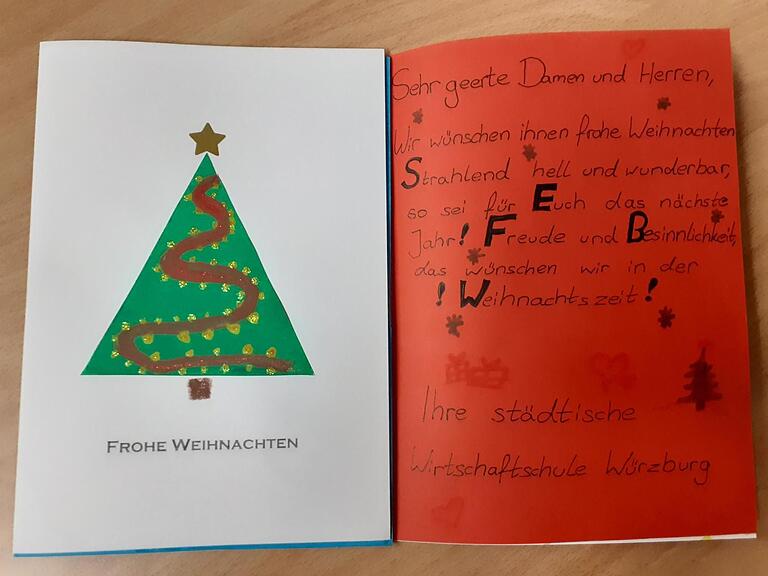 FROHE WEIHNACHTEN
Sehr geerte Damen und Herren,
Wir wünschen ihnen frohe Weihnachten
Strahlend hell und wunderbar,
so sei für Euch das nächste
Jahr! Freude und Besinnlichkeit,
das wünschen wir in der
! Weihnachtszeit !
Ihre städtische
Wirtschaftschule Würzburg